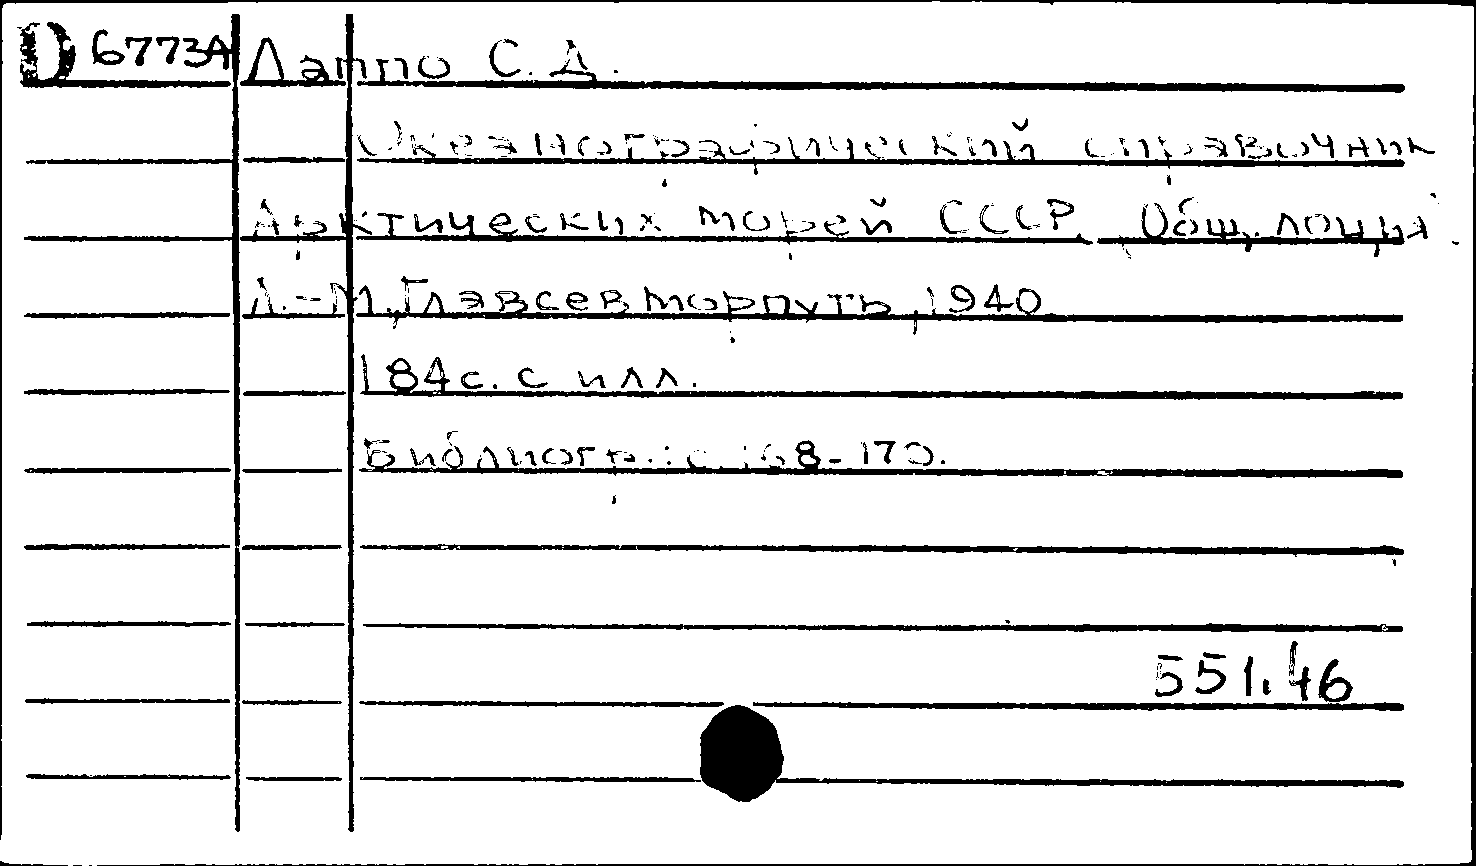 D 6773A Лаппо С. Д.
Океанографический справочник
Арктических морей СССР. Общ. лоция.
Л.-М., Главсевморпуть, 1940
184 с. с илл.
Библиогр.: с. 168-170.
551.46